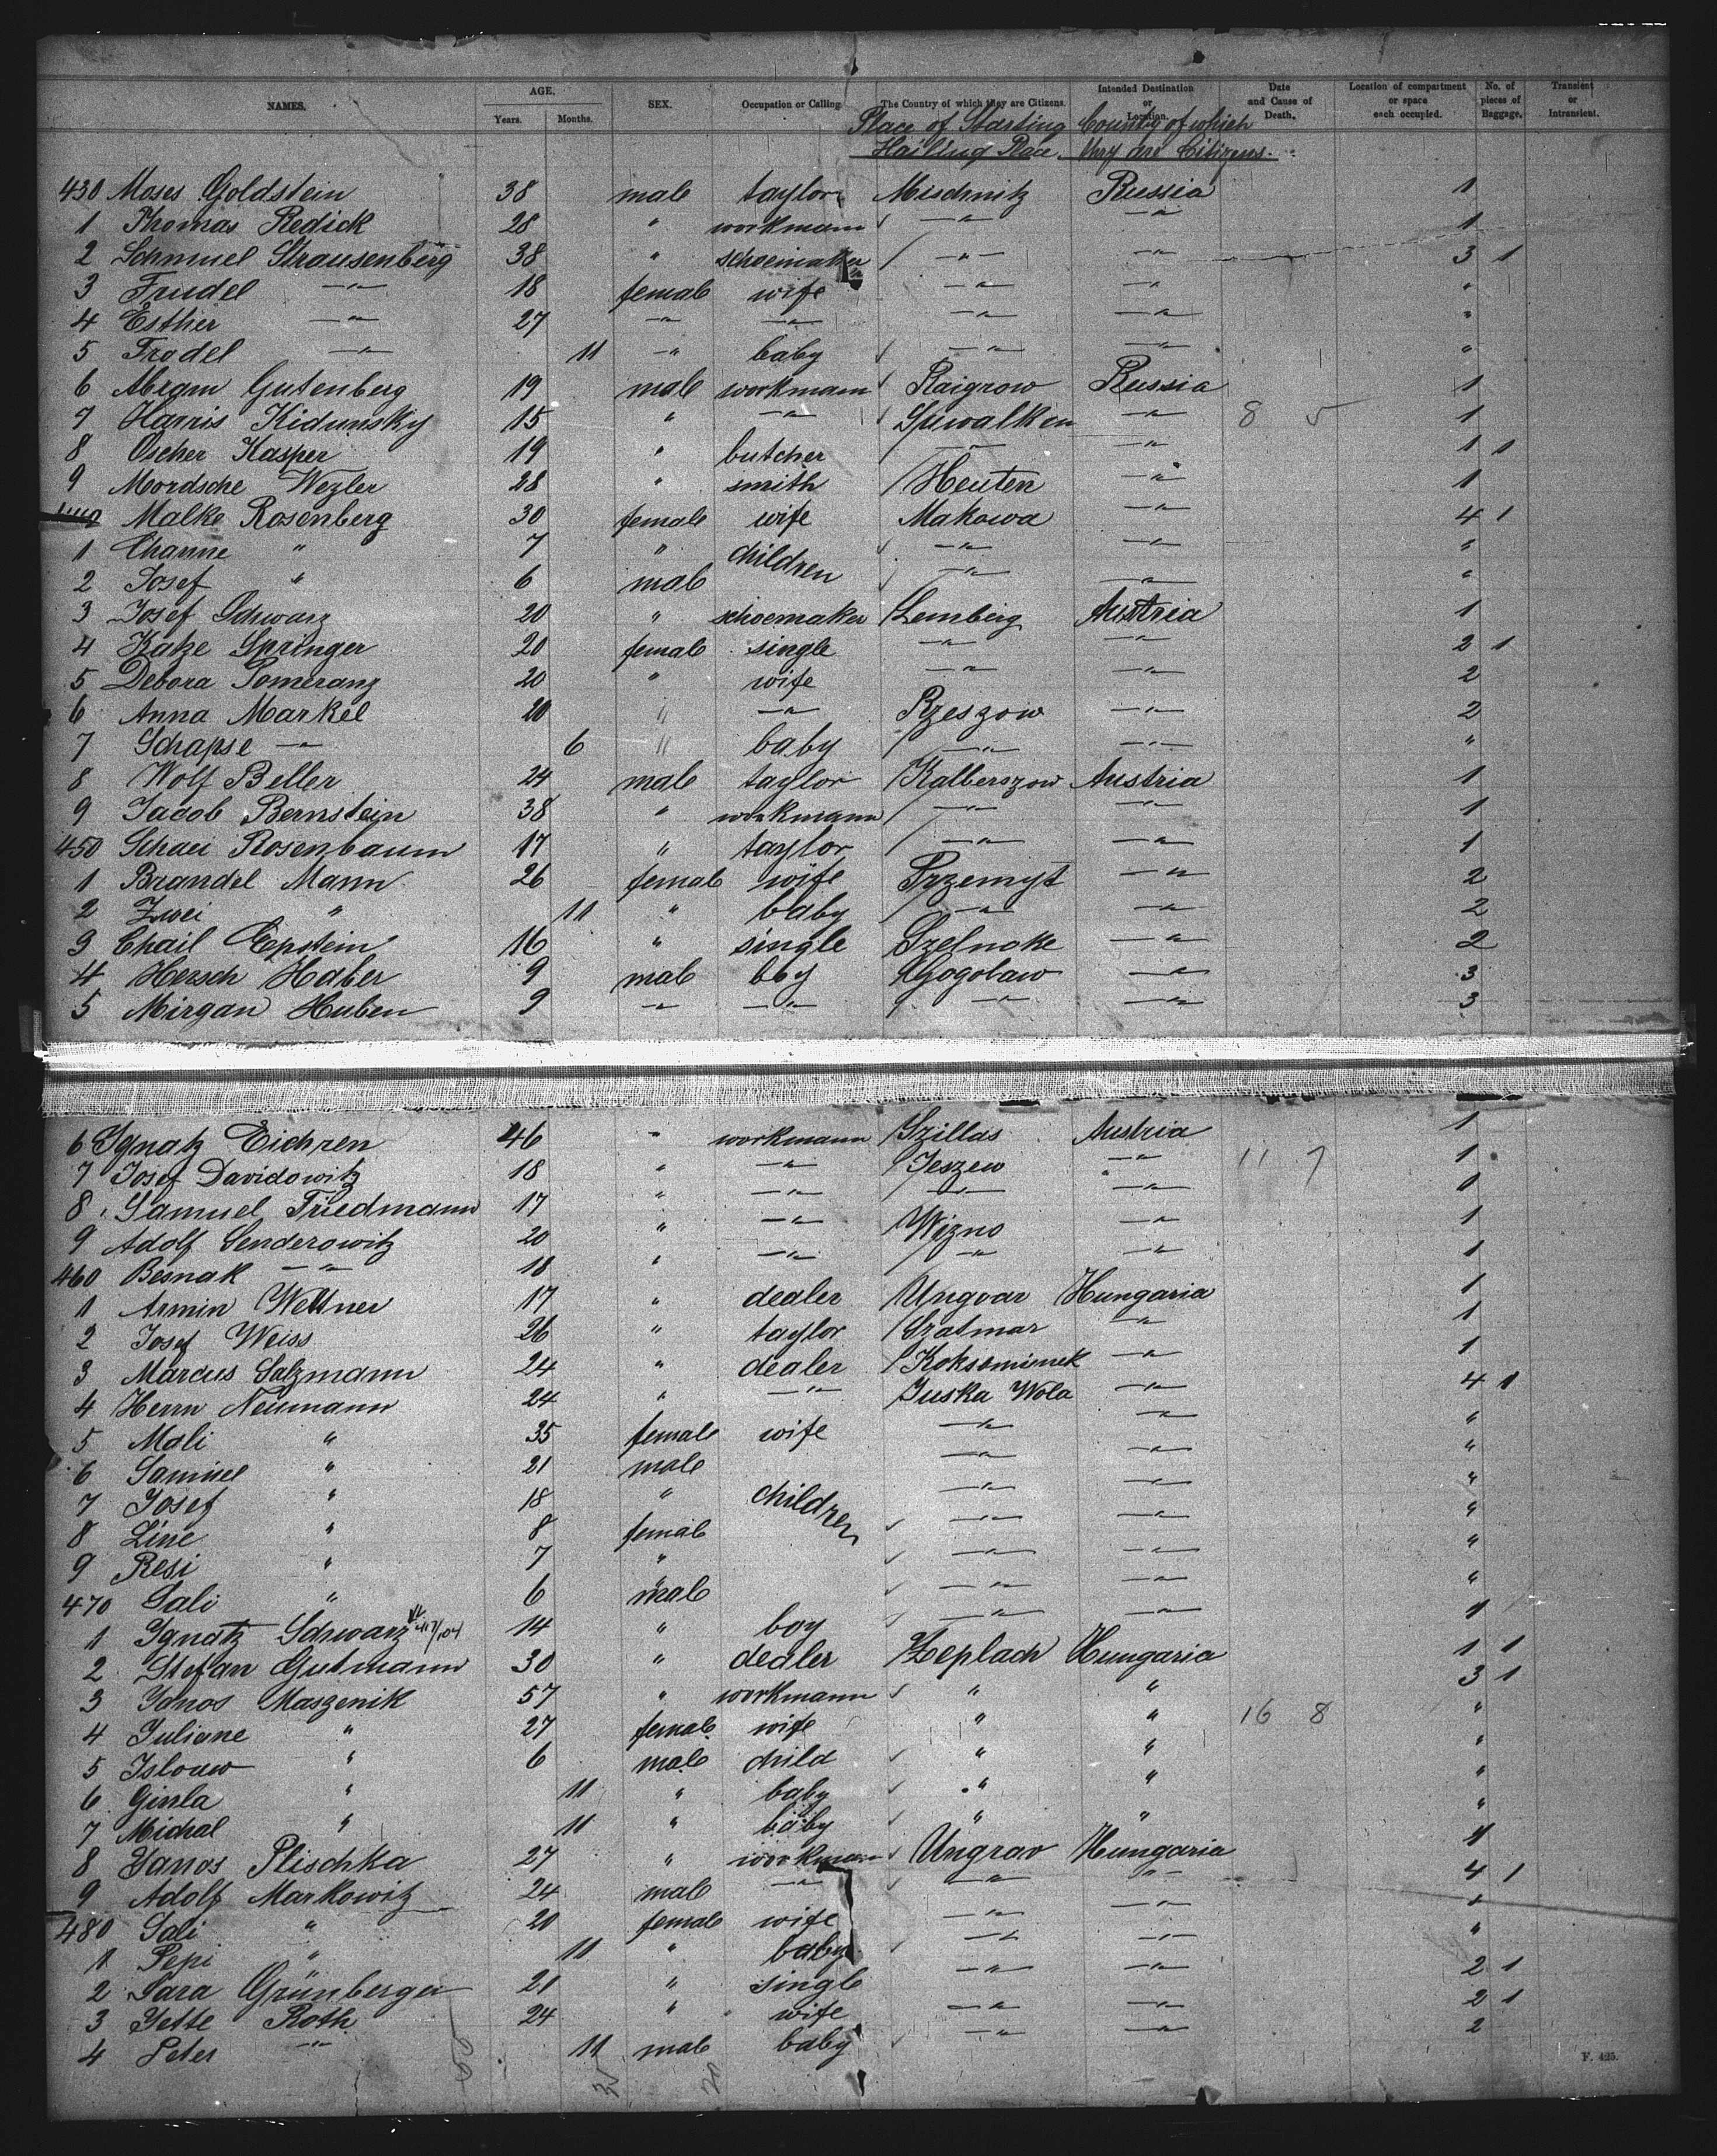 NAMES. AGE. Years. Months. SEX. Occupation or Calling. The Country of which they are Citizens. Intended Destination or Location. Date and Cause of Death. Location of compartment or space each occupied. No. of pieces of Baggage. Transient or Intransient.
Place of Starting Country of which
Hailing Place. they are Citizens.
430 Moses Goldstein 38 male taylor Mischnitz Russia 1
1 Thomas Redick 28 " workmann —"— —"— 1
2 Schmuel Strausenberg 38 " schoemaker —"— —"— 3 1
3 Frudel —"— 18 female wife —"— —"— "
4 Esther —"— 27 —"— —"— —"— —"— "
5 Frodel —"— 11 —"— baby —"— —"— "
6 Abram Gutenberg 19 male workmann Raigrow Russia 1
7 Harris Kidunsky 15 " —"— Suwalken —"— 8 5 1
8 Oscher Kasper 19 " butcher —"— —"— 1 1
9 Mordsche Wezler 28 " smith Heuten —"— 1
440 Malke Rosenberg 30 female wife Makowa —"— 4 1
1 Channe " 7 " children —"— —"— "
2 Josef " 6 male —"— —"— "
3 Josef Schwarz 20 " schoemaker Lemberg Austria 1
4 Katze Springer 20 female single —"— —"— 2 1
5 Debora Pomeranz 20 " wife —"— —"— 2
6 Anna Markel 20 " —"— Rzeszow —"— 2
7 Schapse —"— 6 " baby —"— —"— "
8 Wolf Beller 24 male taylor Kalberszow Austria 1
9 Jacob Bernstein 38 " workmann —"— —"— 1
450 Schaei Rosenbaum 17 " taylor —"— —"— 1
1 Brandel Mann 26 female wife Przemysl —"— 2
2 Zwei " 11 " baby —"— —"— 2
3 Chail Epstein 16 " single Szelnoke —"— 2
4 Hersch Haber 9 male boy Gogolaw —"— 3
5 Mirgan Huben 9 —"— —"— —"— —"— 3
6 Ignatz Eichren 46 " workmann Szillas Austria 1
7 Josef Davidowitz 18 " —"— Jeszew —"— 11 7 1
8 Samuel Friedmann 17 " —"— —"— —"— 1
9 Adolf Senderowitz 20 " —"— Wizno —"— 1
460 Besnak —"— 18 " —"— —"— —"— 1
1 Armin Wettner 17 " dealer Ungvar Hungaria 1
2 Josef Weiss 26 " taylor Szatmar —"— 1
3 Marcus Salzmann 24 " dealer Koksominek —"— 1
4 Herrn Neumann 24 " —"— Juska Wola —"— 4 1
5 Mali " 35 female wife —"— —"— "
6 Samuel " 21 male —"— —"— "
7 Josef " 18 " children —"— —"— "
8 Line " 8 female —"— —"— "
9 Resi " 7 " —"— —"— "
470 Sali " 6 male —"— —"— "
1 Ignatz Schwarz 14 " boy —"— —"— 1
2 Stefan Gutmann 30 " dealer Zeplach Hungaria 1 1
3 Janos Maszenik 57 " workmann " " 3 1
4 Juliane " 27 female wife " " 16 8 "
5 Islouw " 6 male child " " "
6 Ginla " 11 " baby " " "
7 Michal " 11 " baby " " "
8 Janos Plischka 27 " workmann Ungrav Hungaria 1
9 Adolf Markowitz 24 male —"— —"— —"— 4 1
480 Sali " 20 female wife —"— —"— "
1 Pepi " 11 " baby —"— —"— "
2 Sara Grünberger 21 " single —"— —"— 2 1
3 Jette Roth 24 " wife —"— —"— 2 1
4 Peter —"— 11 male baby —"— —"— 2
F. 425.